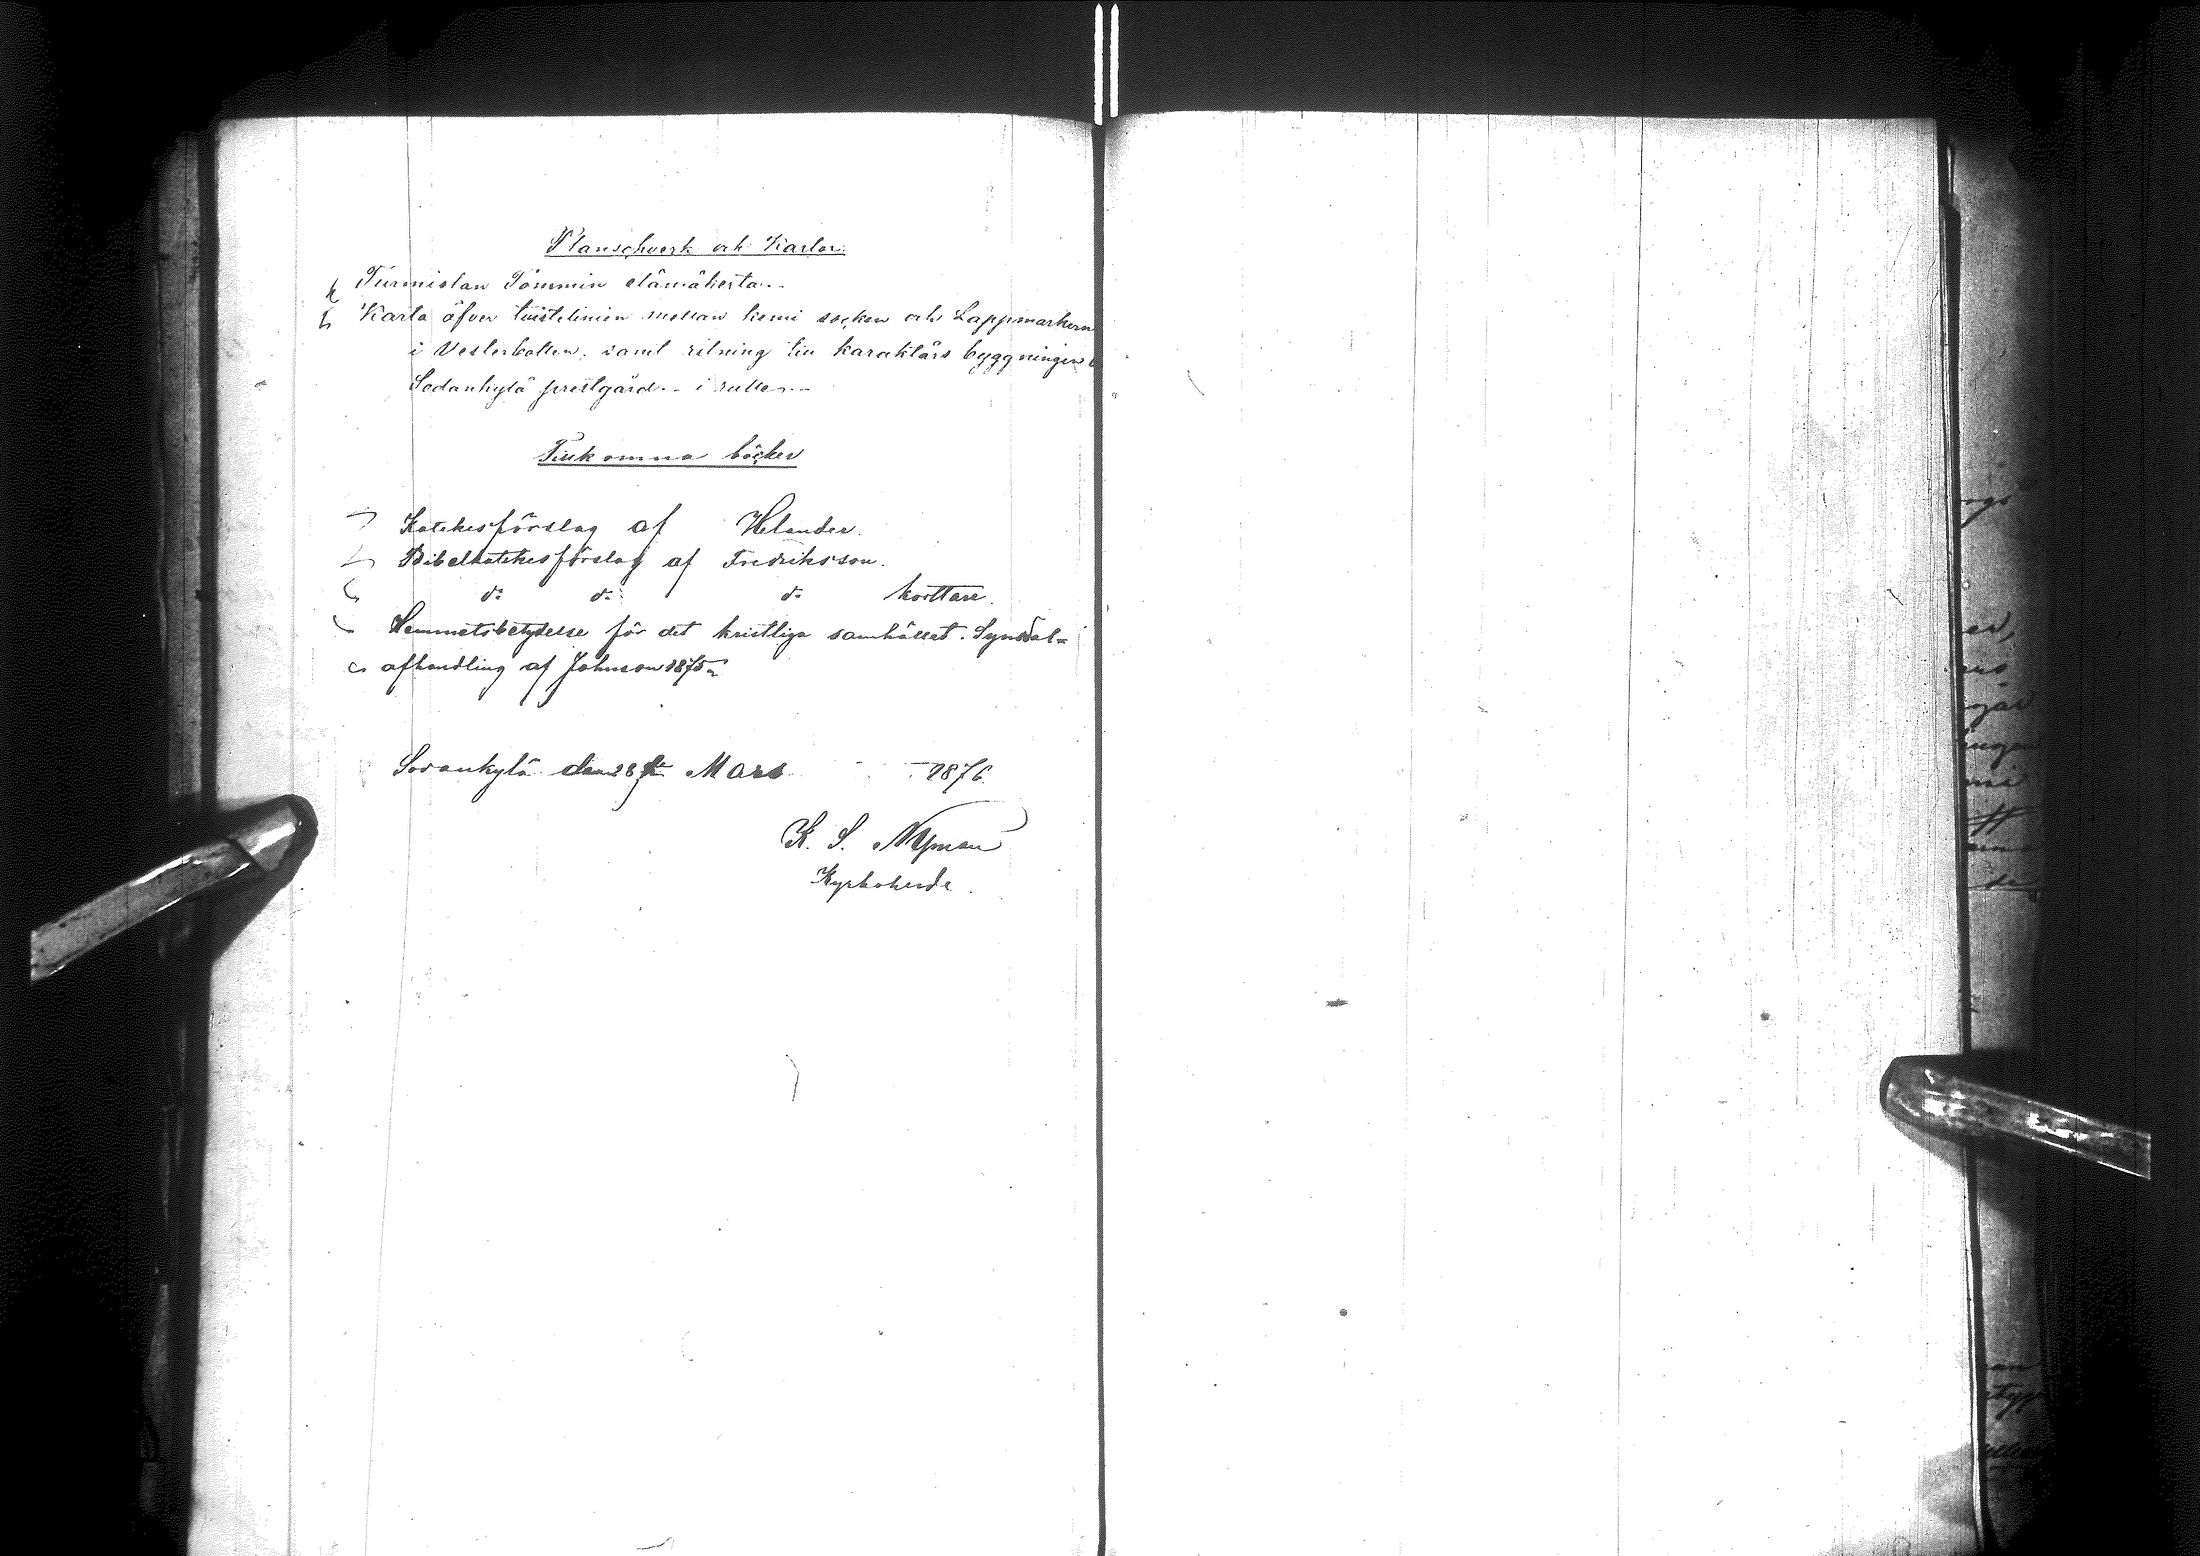 Planschverk och Kartor.
Turmiolan Tommin elämäkerta..
Karta öfver tvistelinien mellan Kemi socken och Lappmarken
i Vesterbotten, samt ritning till karaktärs byggningen
Sodankylä prestgård.. i rulle..
Tillkomna böcker
Katekesförslag af Helander.
Bibelkatekesförslag af Fredriksson.
do do do kortare.
Hemmetsbetydelse för det kristliga samhället. Synodal=
afhandling af Johnsson 1875
Sodankylä den 28 Mars 1876.
K. S. Nyman
Kyrkoherde.